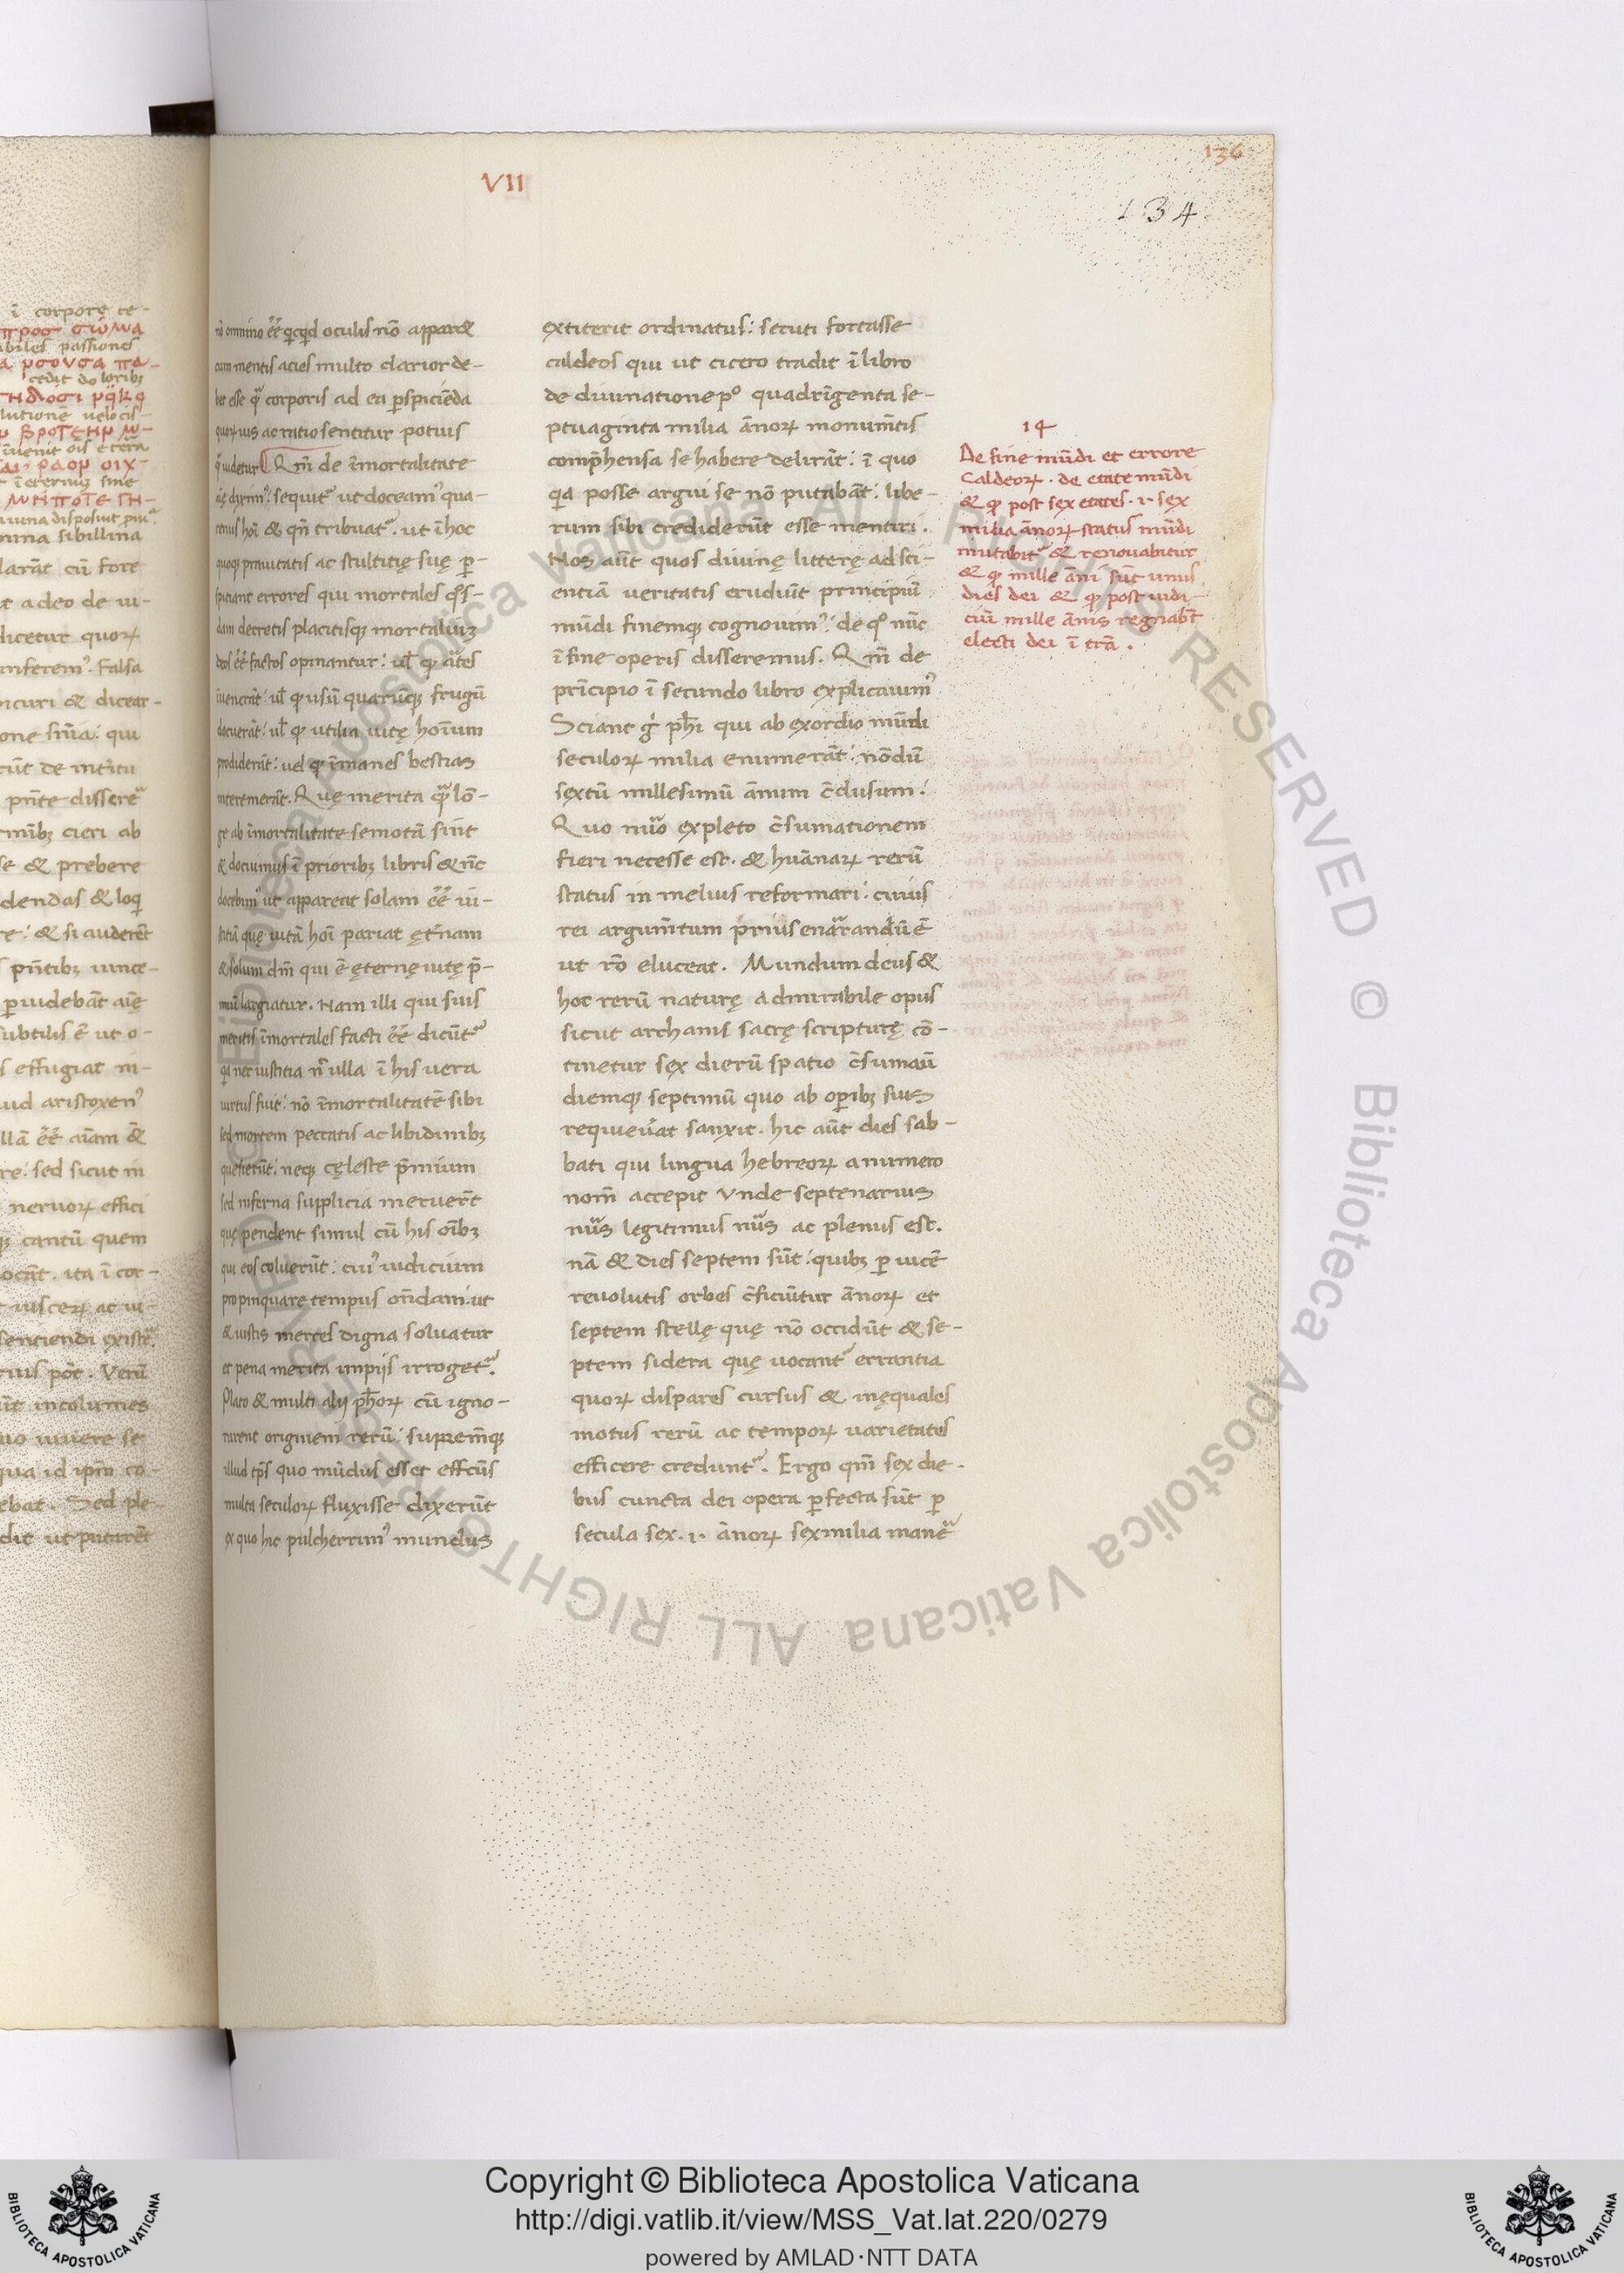 VII
136
134
nō omnino ēē q̇cq̇d oculis nō appar&
cum mentis acies multo clarior de-
bet esse q̄ corporis ad ea ꝑspiciēda
quoꝝ uis ac ratio sentitur potius
q̄ uidetur Qm̄ de īmortalitate
aīę diximꝰ: sequitᷣ ut doceamꝰ qua-
tenus hoī & qn̄ tribuatᷣ. ut ī hoc
quoqꝫ prauitatis ac stultitię suę ꝑ-
spiciant errores qui mortales qͦs-
dam decretis placitisqꝫ mortaliuꝫ
deos ēē factos opinantur: ul̄ ꝙ artes
iuenerāt: ul̄ ꝙ usū quarūcqꝫ frugū
docuerāt: ul̄ ꝙ utilia uitę hoīum
prodiderāt: uel ꝙ īmanes bestias
interemerāt. Quę merita q̄ lō-
ge ab īmortalitate semota sint
& docuimus ī prioribꝫ libris & nūc
docebimꝰ ut appareat solam ēē iu-
stitiā quę uitā hoī pariat ęt̄nam
& solum dm̄ qui ē ęternę uitę p̄-
miū largiatur. Nam illi qui suis
meritis īmortales facti ēē dicūtᷣ
qa nec iustitia n̄ ulla ī his uera
uirtus fuit: nō īmortalitatē sibi
sed mortem peccatis ac libidinibꝫ
quęsierūt: neqꝫ cęleste p̄mium
sed inferna supplicia meruerūt
quę pendent simul cū his oībꝫ
qui eos coluerūt: cuiꝰ iudicium
propinquare tempus ond̄am: ut
& iustis merces digna soluatur
et pena merita impijs irrogetᷣ.
Plato & multi alij ph̄oꝝ cū igno-
rarent originem rerū: supremūqꝫ
illud tp̄s quo mūdus esset effcūs
multa seculoꝝ fluxisse dixerūt
ex quo hic pulcherrimꝰ mundus
extiterit ordinatus: secuti fortasse
caldeos qui ut cicero tradit ī libro
de diuinatione pͦ quadrīgenta se-
ptuaginta milia ānoꝝ monum̄tis
comp̄hensa se habere delirāt: ī quo
qa posse argui se nō putabāt: libe-
rum sibi crediderūt esse mentiri.
Nos aūt quos diuinę litterę ad sci-
entiā ueritatis erudiūt principiū
mūdi finemqꝫ cognouimꝰ: de qͦ nūc
ī fine operis disseremus. Qm̄ de
prīcipio ī secundo libro explicauimꝰ
Sciant gͥ ph̄i qui ab exordio mūdi
seculoꝝ milia enumerāt: nōdū
sextū millesimū ānum c̄clusum:
Quo nūo expleto c̄sumationem
fieri necesse est. & huānaꝝ rerū
status in melius reformari: cuius
rei argum̄tum prius enarrandū ē
ut rō eluceat. Mundum deus &
hoc rerū naturę admirabile opus
sicut archanis sacrę scripturę cō-
tinetur sex dierū spatio c̄sumauit
diemqꝫ septimū quo ab oꝑibꝫ suis
requieuerat sanxit. hic aūt dies sab-
bati qui lingua hebreoꝝ a numero
nom̄ accepit Vnde septenarius
nūs legitimus nūs ac plenus est.
nā & dies septem sūt: quibꝫ ꝑ uicē
reuolutis orbes c̄ficiūtur ānoꝝ et
septem stellę quę nō occidūt & se-
ptem sidera quę uocantᷣ errantia
quoꝝ dispares cursus & inęquales
motus rerū ac tempoꝝ uarietates
efficere creduntᷣ. Ergo qm̄ sex die-
bus cuncta dei opera ꝑfecta sūt ꝑ
secula sex .i. ānoꝝ sex milia manē
14
De fine mūdi et errore
Caldeoꝝ. de etate mūdi
& ꝙ post sex etates .i. sex
milia ānoꝝ status mūdi
mutabitᷣ & renouabitur
& ꝙ mille āni sūt unus
dies dei & ꝙ post iudi-
ciū mille ānis regnabūt
electi dei ī trā.
Copyright © Biblioteca Apostolica Vaticana
http://digi.vatlib.it/view/MSS_Vat.lat.220/0279
powered by AMLAD·NTT DATA